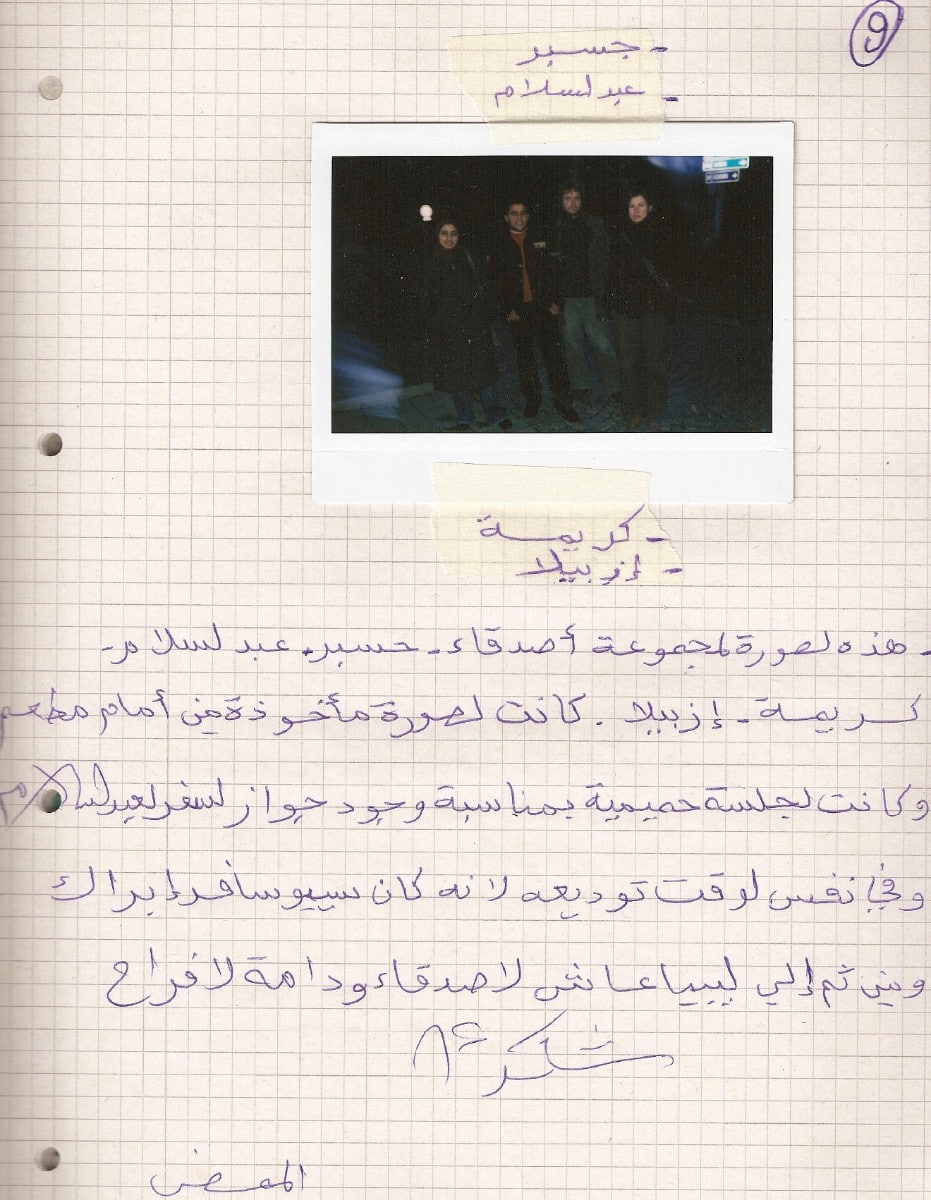 9
- جسبر
- عبد لسلام
- كريمة
- إزبيلا
- هذه لصورة لمجموعة أصدقاء - حسبر - عبد لسلام -
كريمة - إزبيلا . كانت لصورة مأخوذة من أمام مطعم
وكانت لجلسة حميمية بمناسبة وجود جواز لسفر لعبدلسلام
وفي نفس لوقت توديعه لانه كان سييوسافر إبراك
ومن ثم إلي ليبيا عاش لاصدقاء ودامة لافراح
شكرا